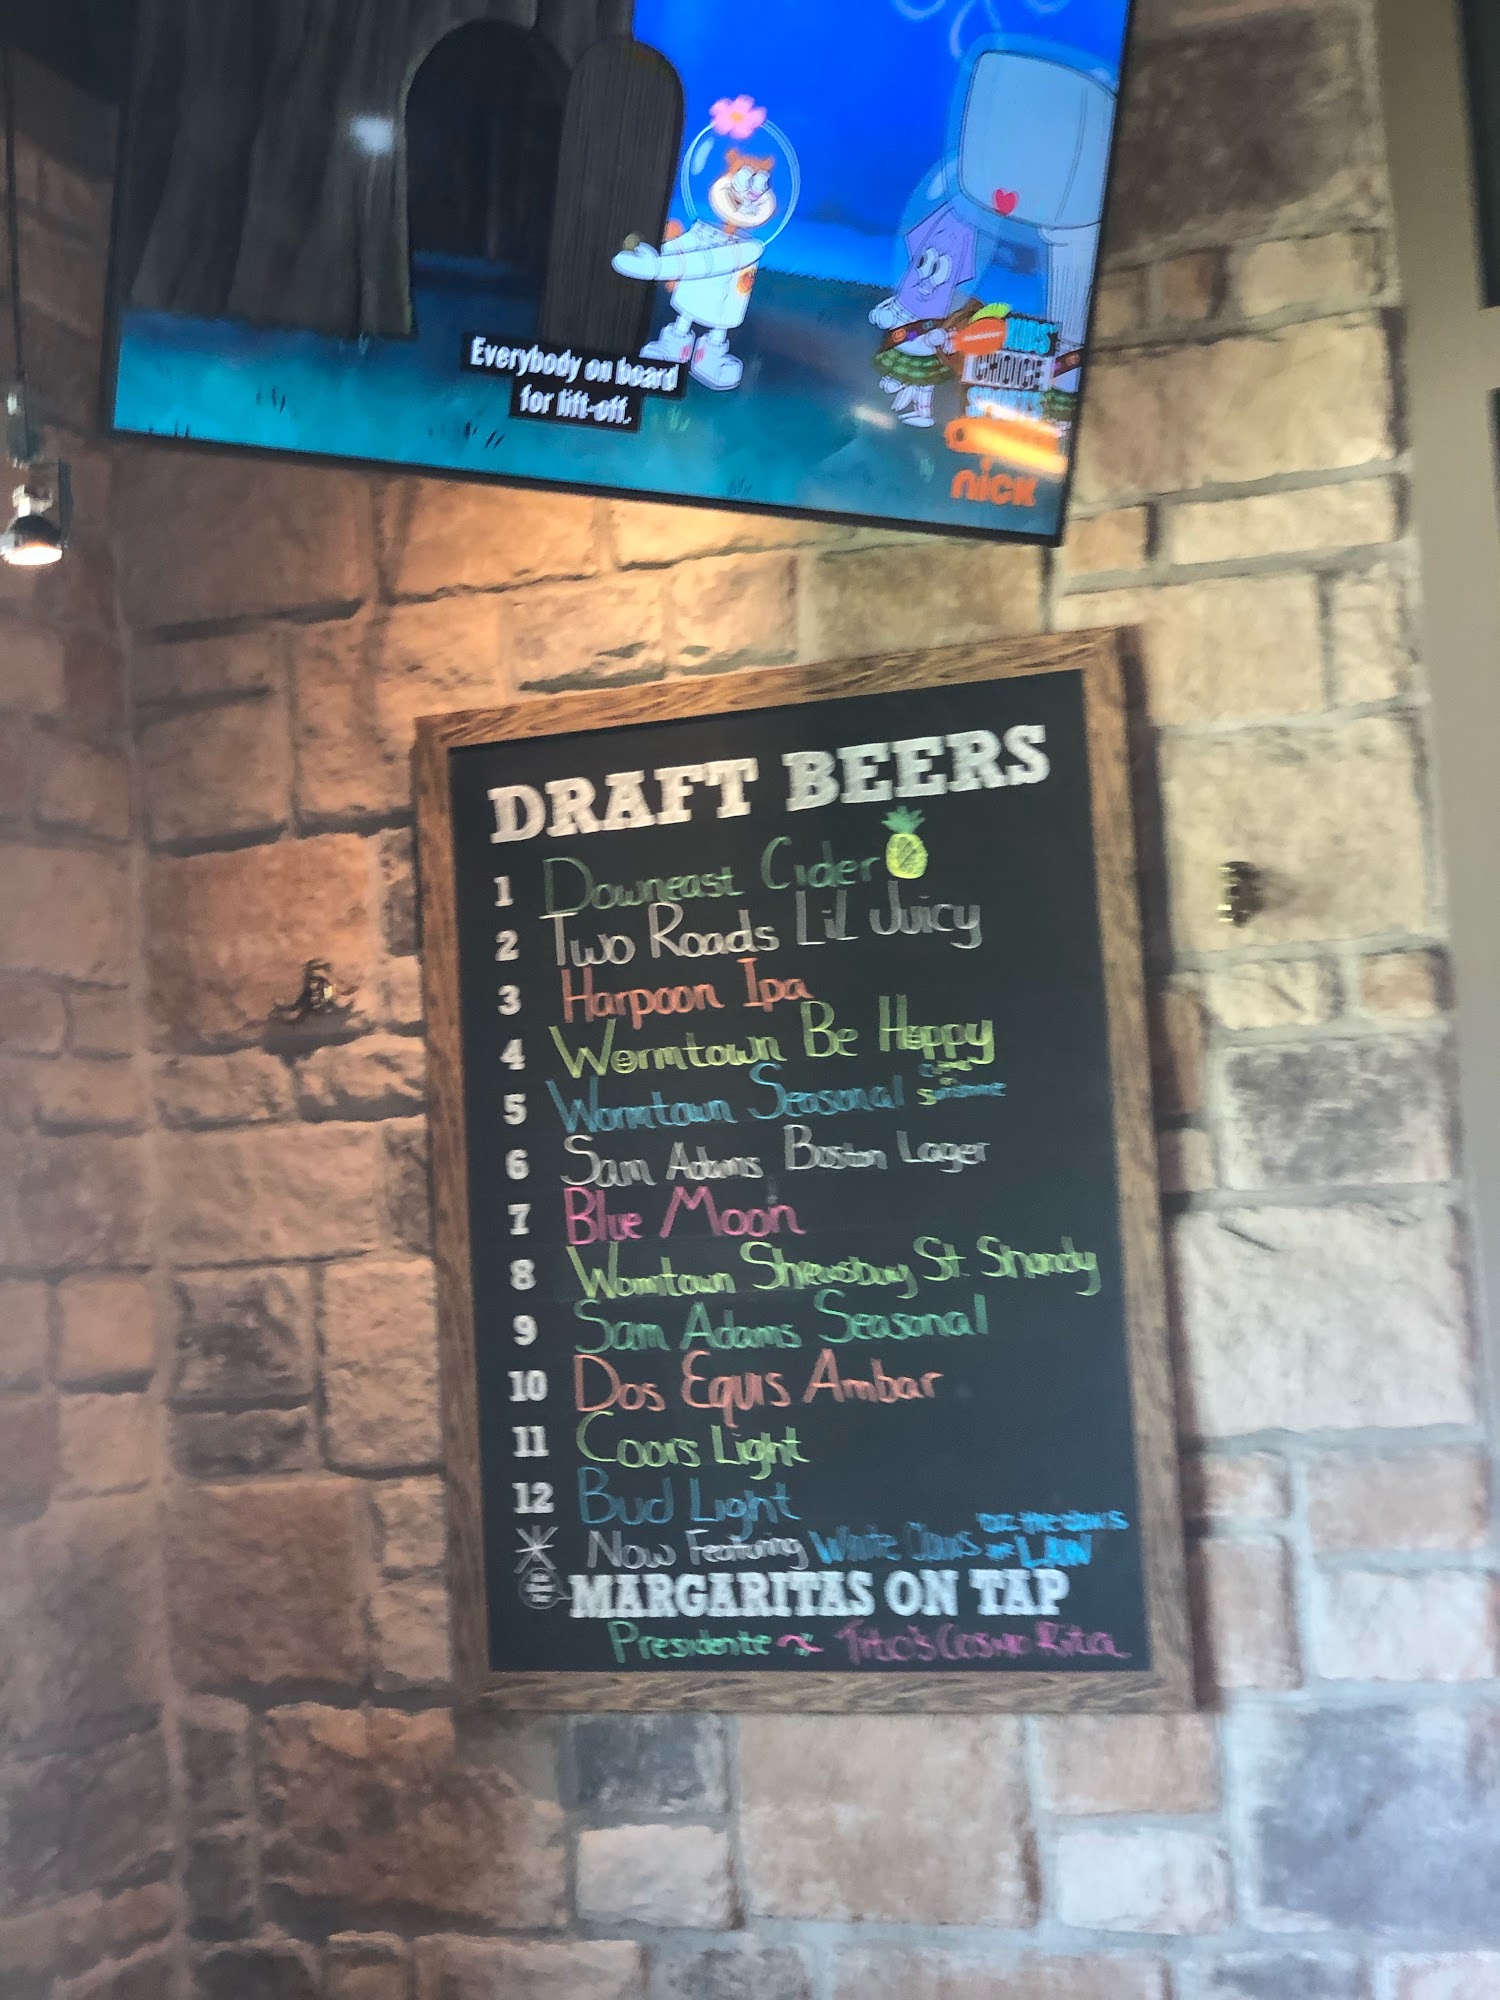 Everybody on board
for lift-off.
KIDS'
CHOICE
SPORTS
nick
DRAFT BEERS
1 Downeast Cider
2 Two Roads Lil Juicy
3 Harpoon Ipa
4 Wormtown Be Hoppy
5 Wormtown Seasonal
6 Sam Adams Boston Lager
7 Blue Moon
8 Wormtown Shrewsbury St. Shandy
9 Sam Adams Seasonal
10 Dos Equis Ambar
11 Coors Light
12 Bud Light
Now Featuring White Claws
LAW
MARGARITAS ON TAP
Presidente Tito's Cosmo Rita